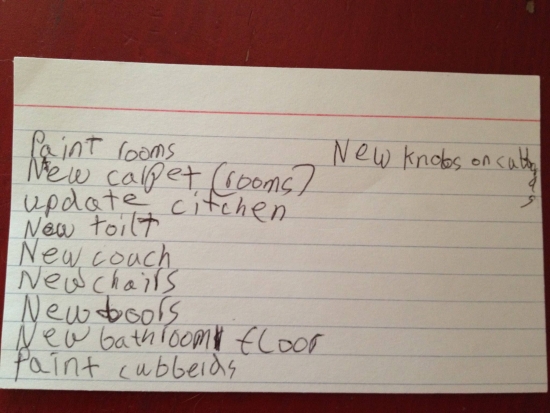 Paint rooms
New carpet (rooms)
update citchen
New toilt
New couch
New chairs
New doors
New bathroom floor
Paint cubberds
New knobs on